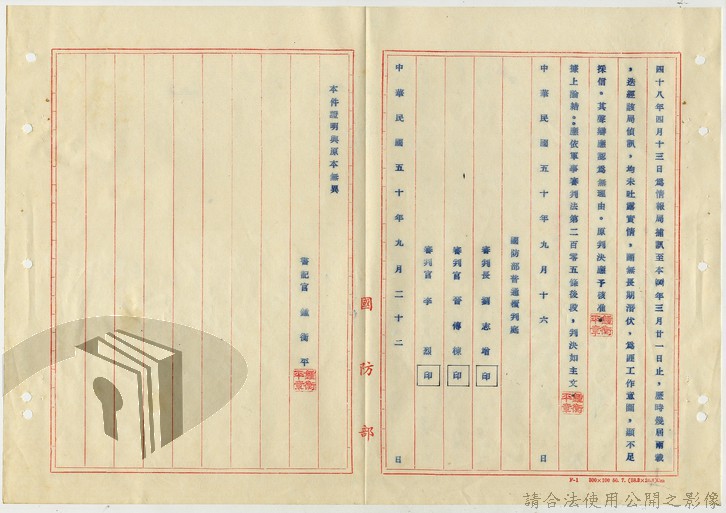 四十八年四月十三日爲情報局捕訊至本年三月廿一日止，歷時幾屆兩載
，迭經該局偵訊，均未吐露實情，顯無長期潛伏，爲匪工作意圖，顯不足
採信。其聲辯應認爲無理由。原判決應予核准。
據上論結，應依軍事審判法第二百零五條後段，判決如主文。
中華民國五十年九月十六日
國防部普通覆判庭
審判長劉志增 印
審判官曾傳棟 印
審判官李烈 印
中華民國五十年九月二十二日
國防部
本件證明與原本無異
書記官鍾衡平
F-1
請合法使用公開之影像